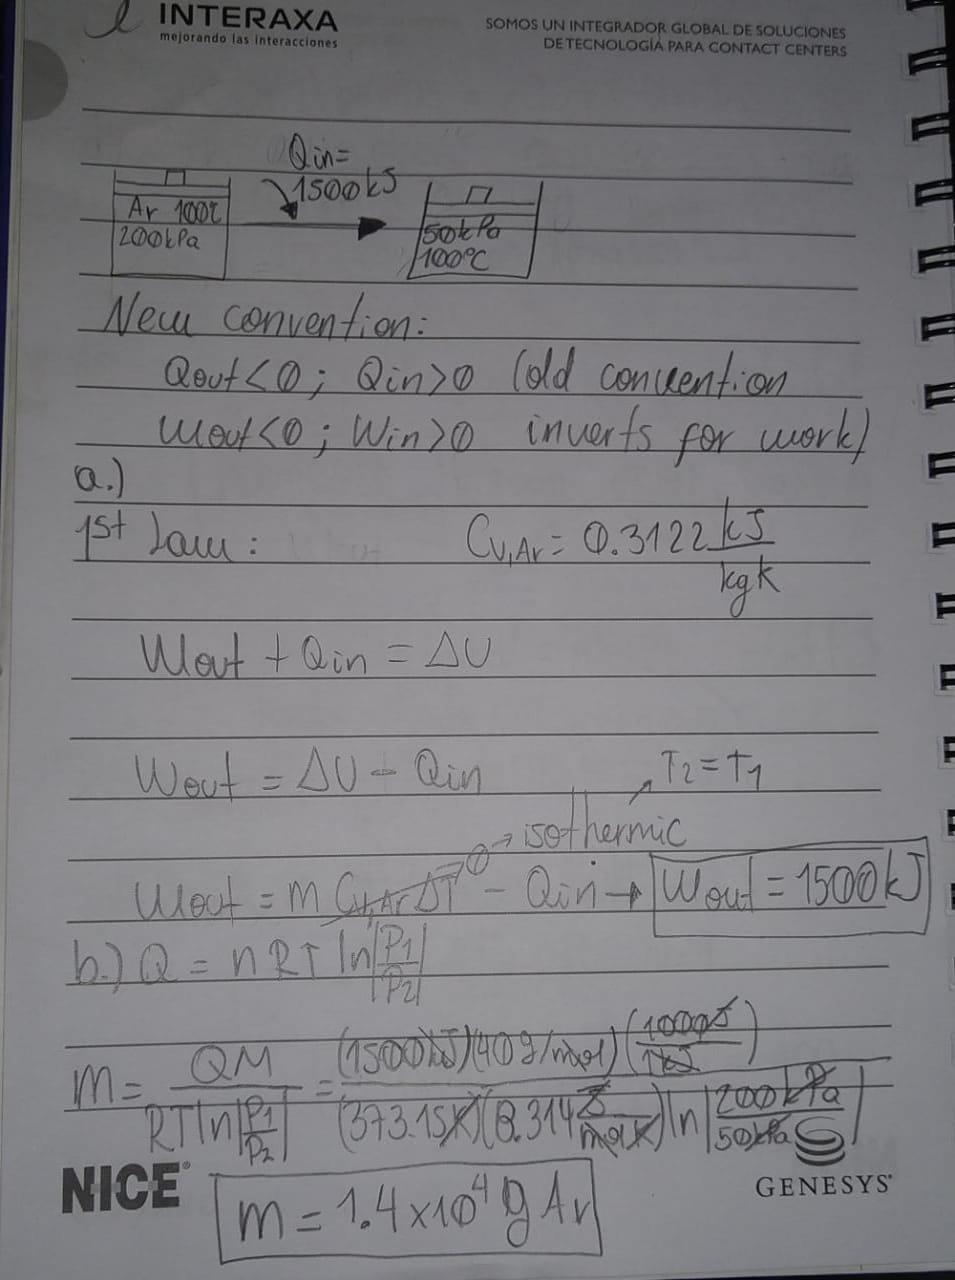 INTERAXA
mejorando las interacciones
SOMOS UN INTEGRADOR GLOBAL DE SOLUCIONES
DE TECNOLOGÍA PARA CONTACT CENTERS
Qin=
1500kJ
Ar 100℃
200kPa
50kPa
100°C
New convention:
Qout<0; Qin>0 (old convention
Wout<0; Win>0 inverts for work)
a.)
1st Law: Cv,Ar = 0.3122 kJ/kgK
Wout + Qin = ΔU
Wout = ΔU - Qin
T2=T1
0 → isothermic
Wout = m Cv,Ar ΔT - Qin → Wout = 1500kJ
b.) Q = nRT ln|P1/P2|
m = QM/RT ln|P1/P2| = (1500kJ)(40g/mol)(1000J/1kJ)/(373.15K)(8.314J/molK)ln|200kPa/50kPa|
NICE®
GENESYS®
m = 1.4x10⁴ g Ar